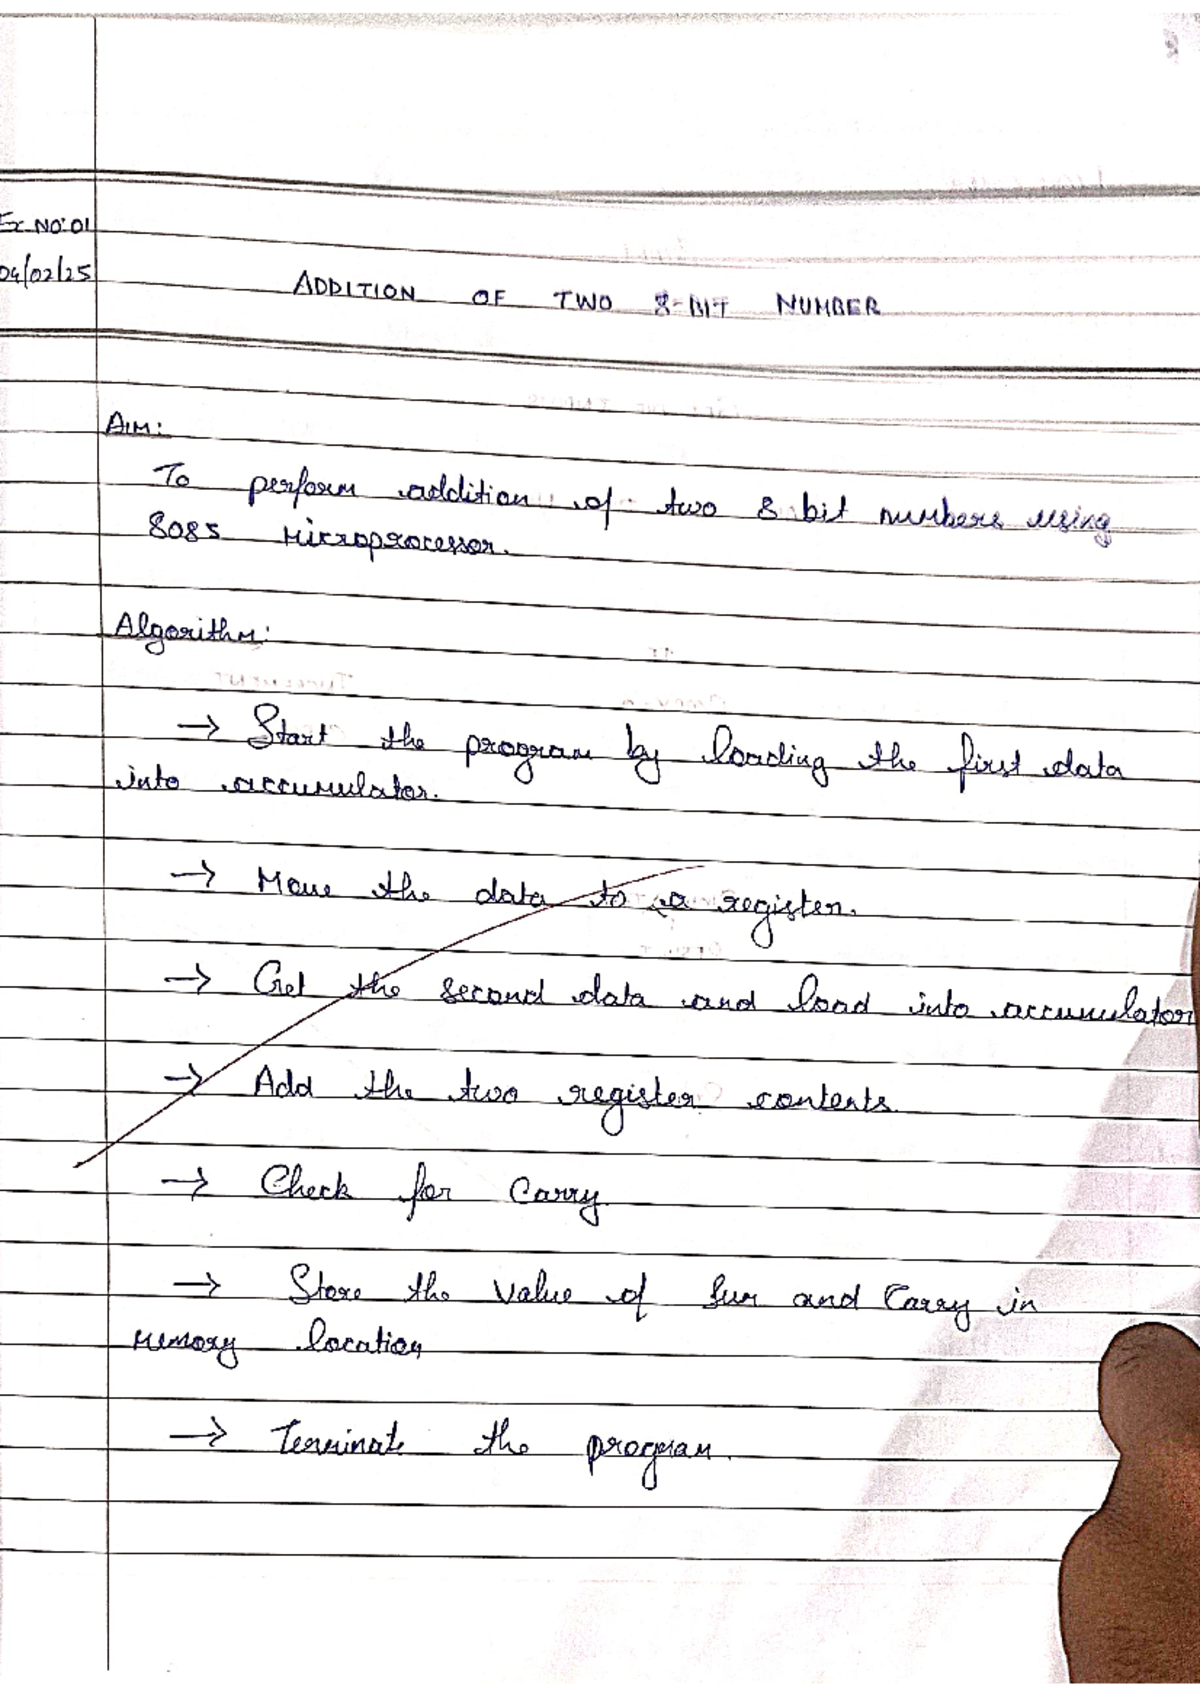 Ex. NO: 01
04/02/25
ADDITION OF TWO 8-BIT NUMBER
AIM:
To perform addition of two 8 bit numbers using
8085 Microprocessor.
Algorithm:
→ Start the program by loading the first data
into accumulator.
→ Move the data to a register.
→ Get the second data and load into accumulator
→ Add the two register contents.
→ Check for Carry
→ Store the value of sum and Carry in
memory location
→ Terminate the program.